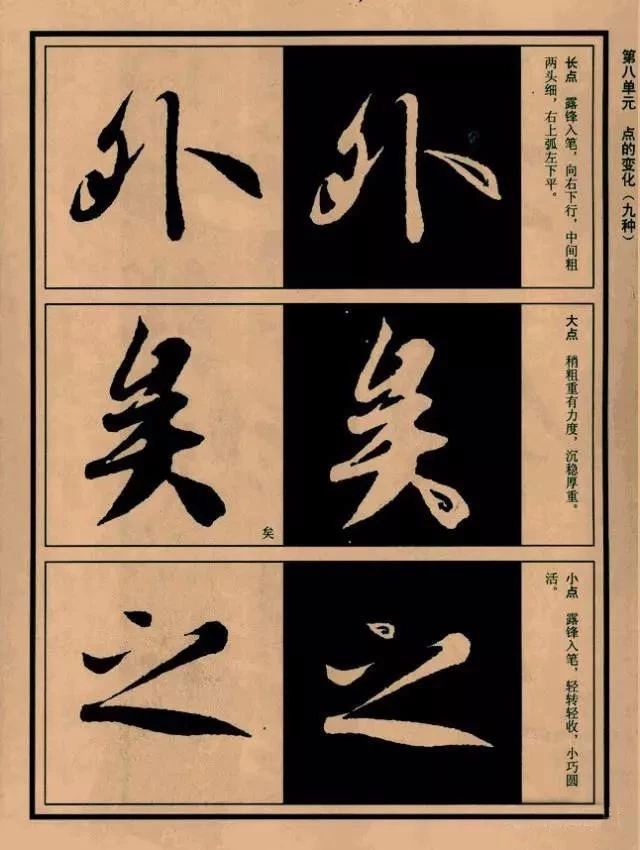 第八单元 点的变化（九种）
长点 露锋入笔，向右下行，中间粗
两头细，右上弧左下平。
外 外
大点 稍粗重有力度，沉稳厚重。
矣 矣
矣
小点 露锋入笔，轻转轻收，小巧圆
活。
之 之